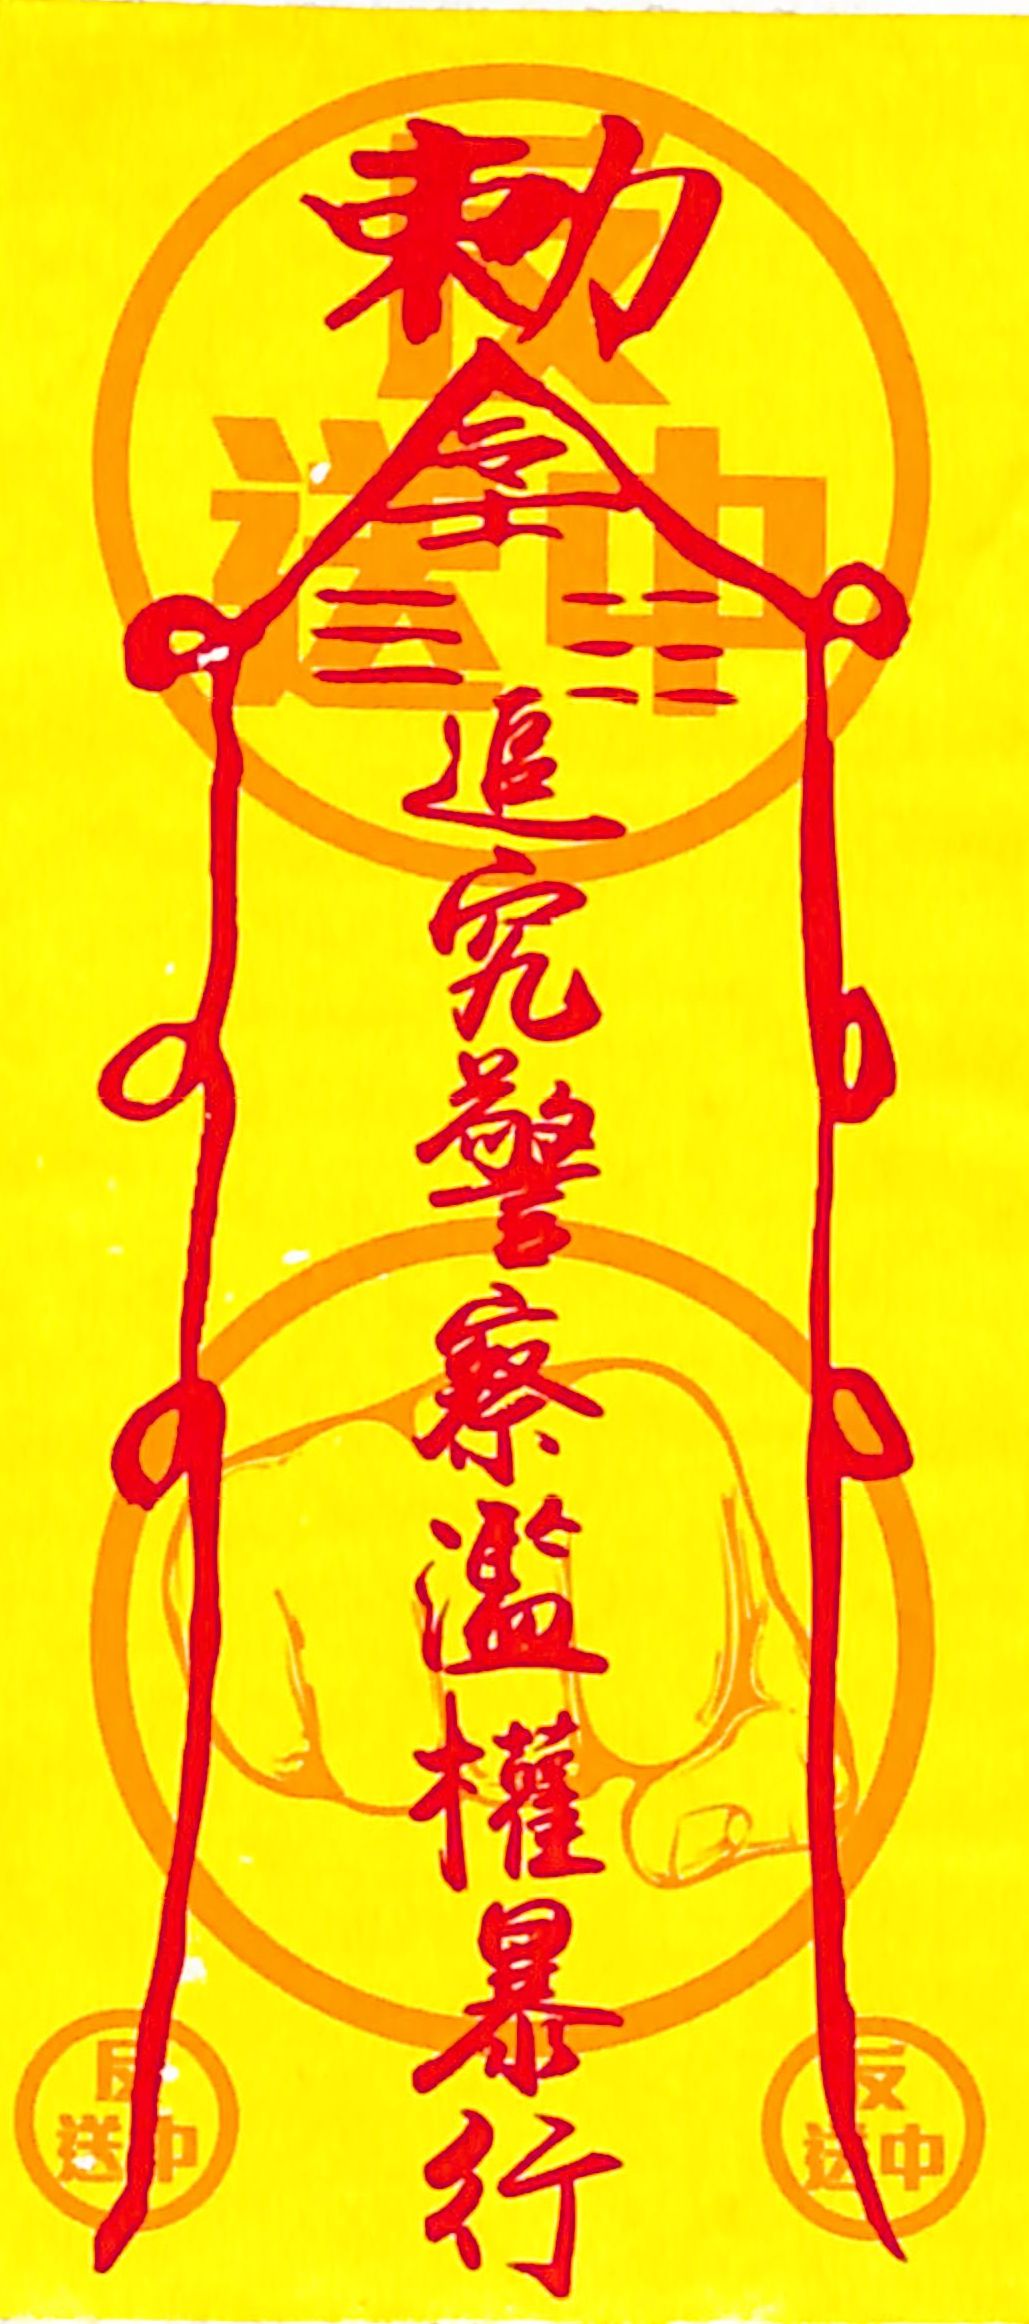 勅令
追究警察濫權暴行
反
送中
反
送中
反
送中